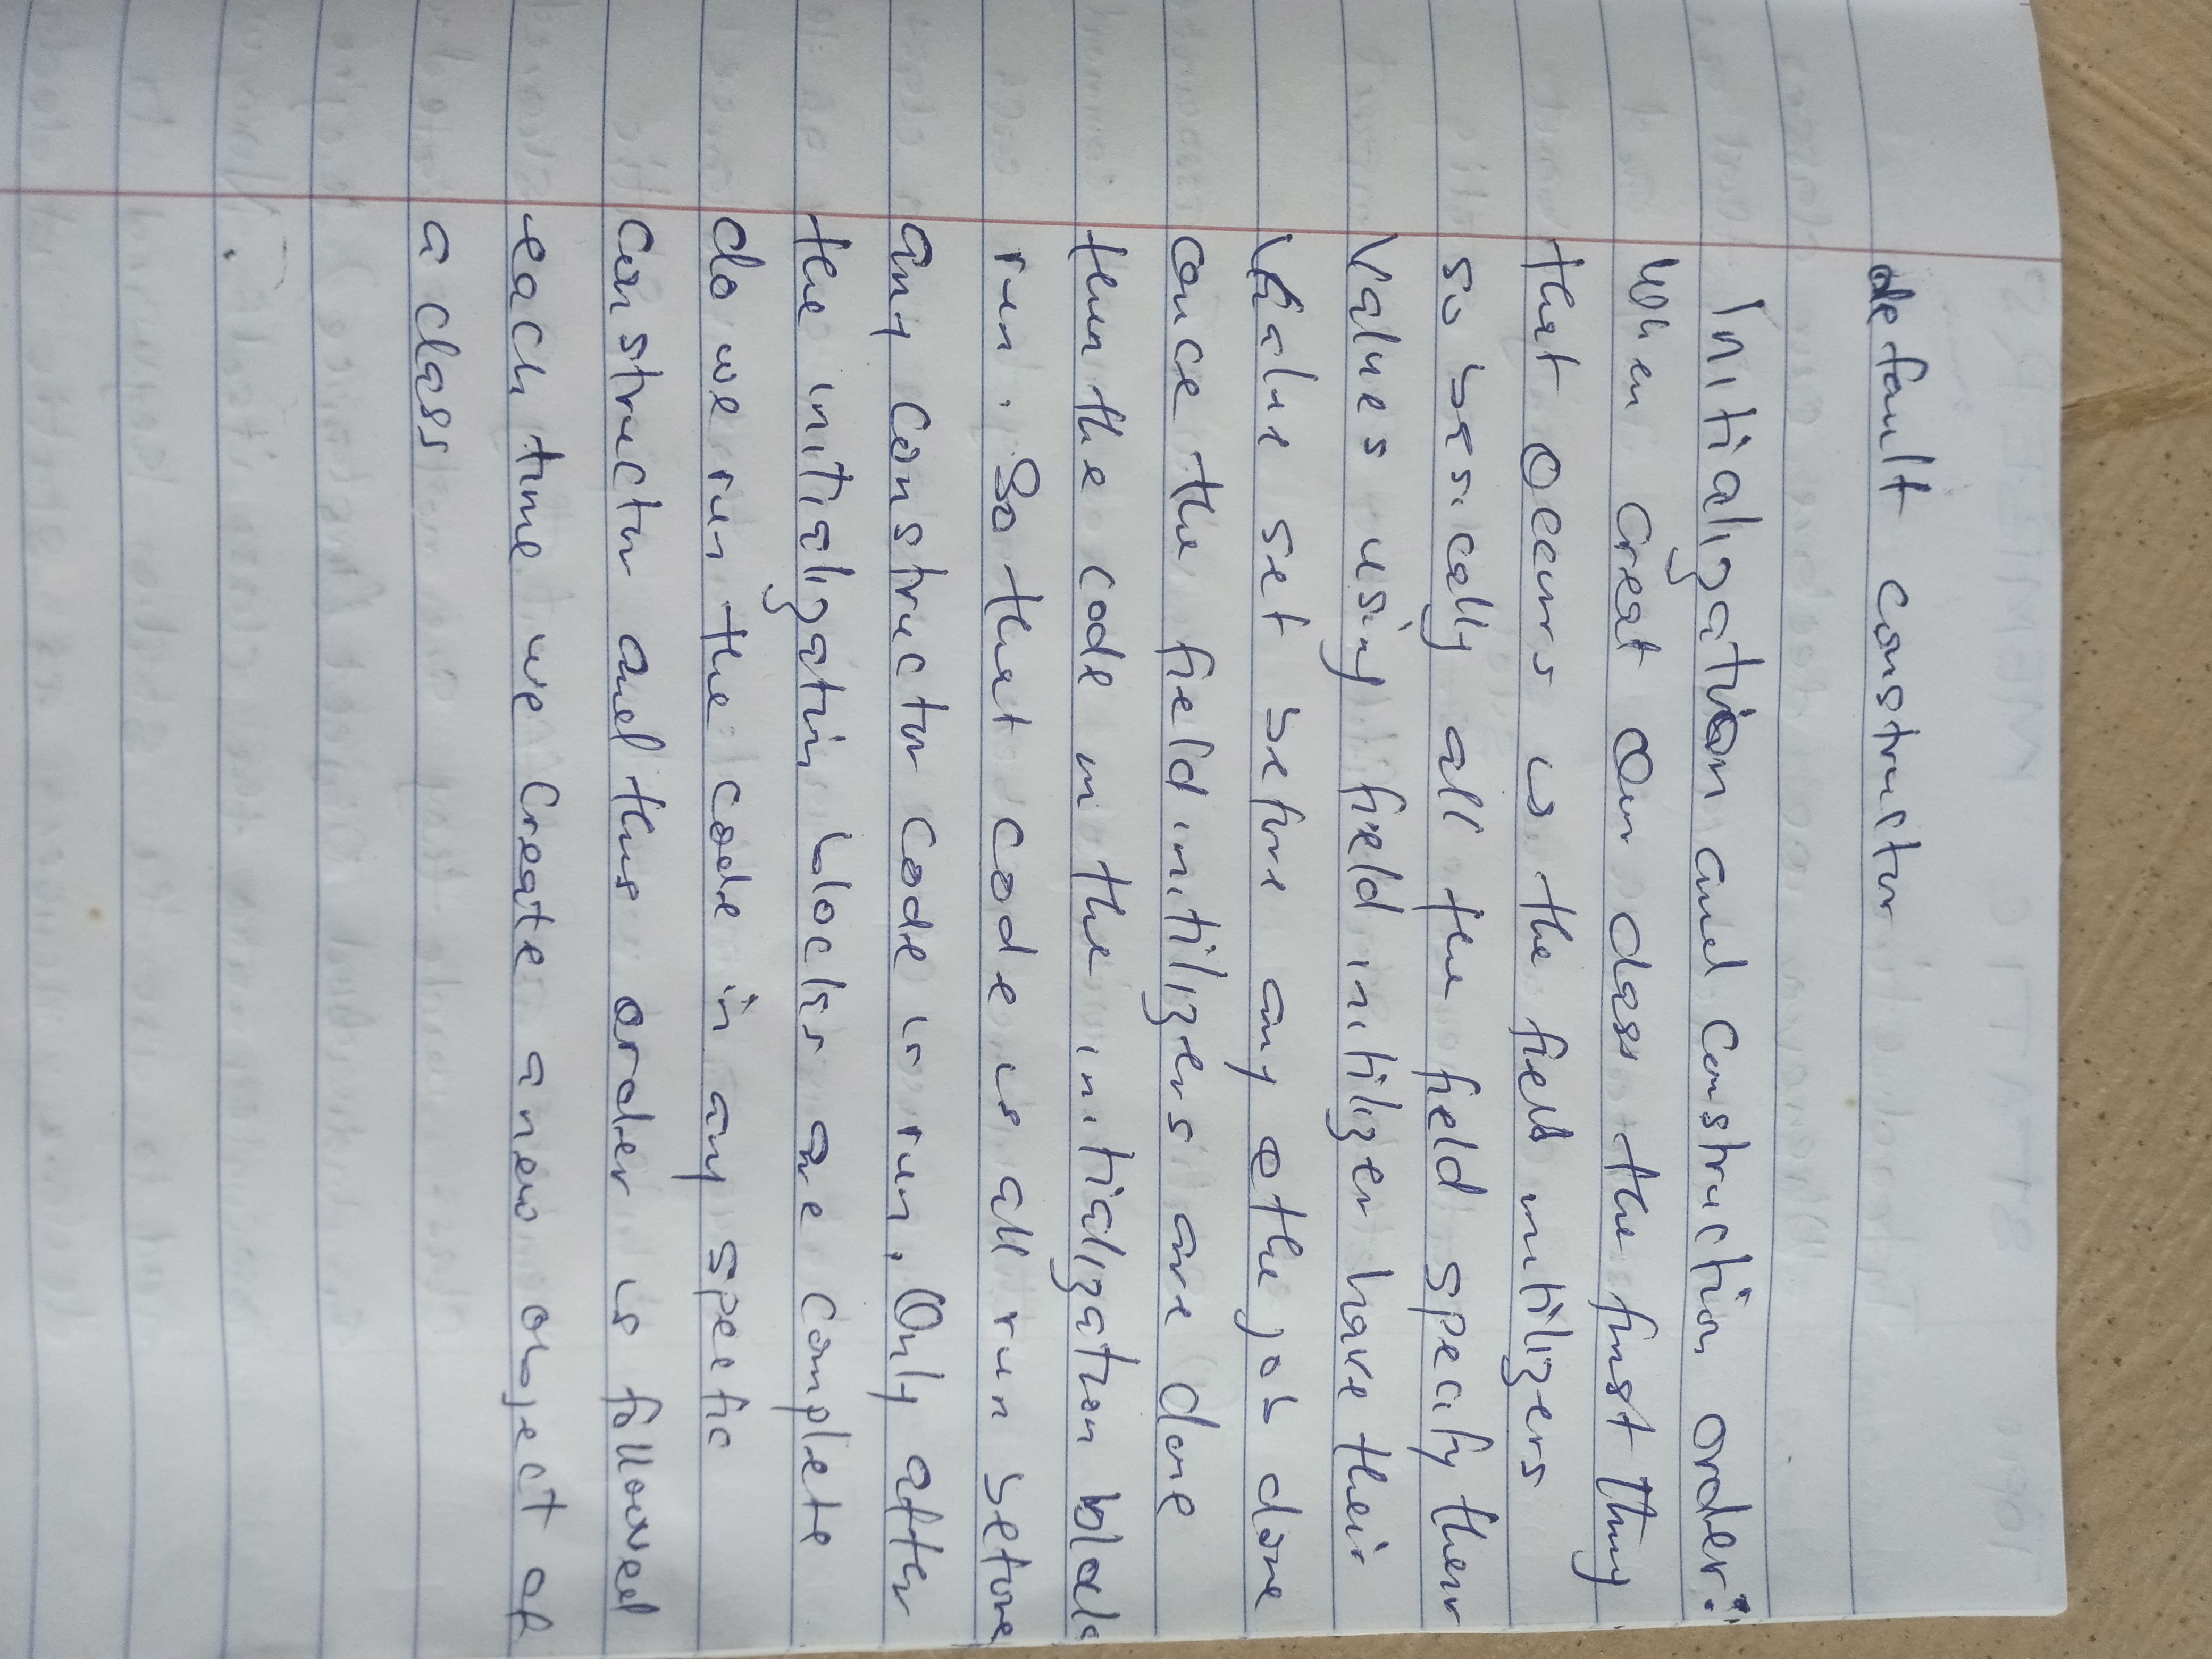 default constructor
Initialization and construction order:
When creat our class the first thing
that occurs is the field initilizers
so besically all the field specify their
values using field initilizer have their
value set before any othe job done
once the field initilizers are done
then the code in the initialization block
run. So that code is all run before
any constructor code is run. Only after
the initialization blocks are complete
do we run the code in any spefic
constructor and this order is followed
each time we create a new object of
a class